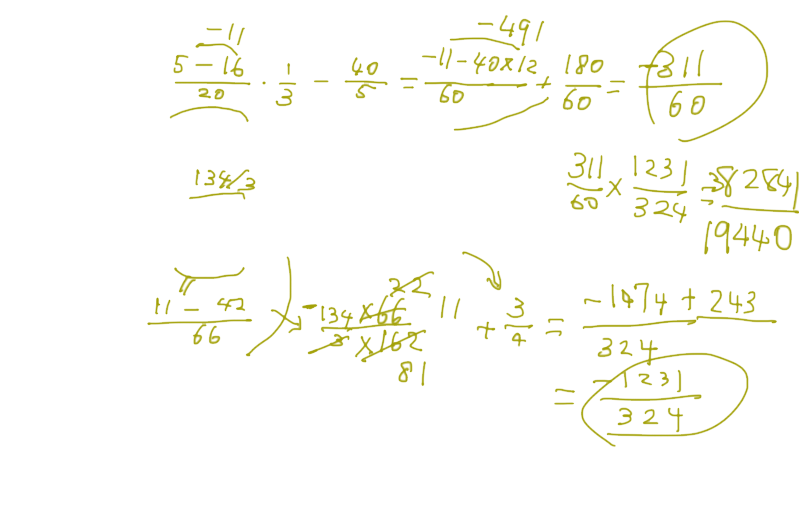 -11 -491
5 - 16 / 20 · 1/3 - 40/5 = -11 - 40×12 / 60 + 180/60 = -311/60
134/3
311/60 × 1231/324 = 382841/19440
11 - 42 / 66 -134×66 / 3×162 22 11 81 + 3/4 = -1474 + 243 / 324
= -1231/324